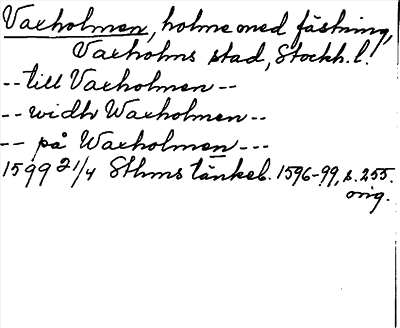 Vaxholmen, holme med fästning,
Vaxholms stad, Stockh. l.
-- till Vaxholmen --
-- widh Waxholmen --
-- på Waxholmen ---
1599 21/4 Sthms tänkeb. 1596-99, s. 255.
orig.